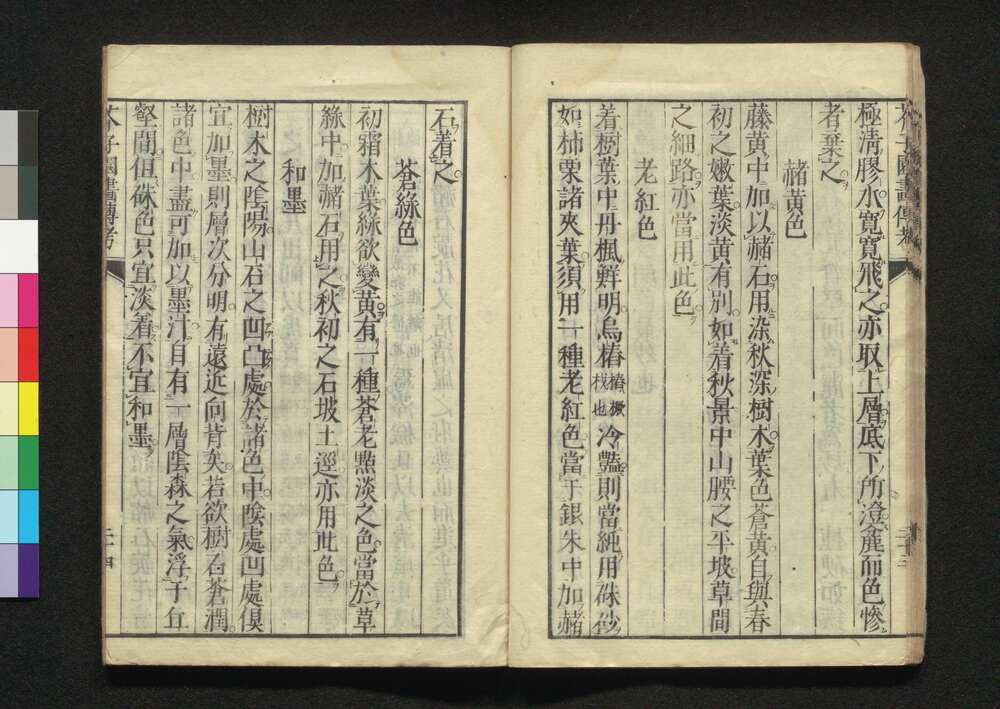 極淸膠水寬寬飛之亦取上層底下所澄麁而色慘
者棄之
赭黄色
藤黄中加以赭石用染秋深樹木葉色蒼黄自與春
初之嫩葉淡黄有別如着秋景中山腰之平坡草間
之細路亦當用此色
老紅色
着樹葉中丹楓鮮明烏椿冷艷則當純用硃砂
如柿栗諸夾葉須用一種老紅色當于銀朱中加赭
石着之
蒼綠色
初霜木葉綠欲變黄有一種蒼老黯淡之色當於草
綠中加赭石用之秋初之石坡土逕亦用此色
和墨
樹木之陰陽山石之凹凸處於諸色中陰處凹處俱
宜加墨則層次分明有遠近向背矣若欲樹石蒼潤
諸色中盡可加以墨汁自有一層陰森之氣浮于丘
壑間但硃色只宜淡着不宜和墨
芥子園畫傳考
二十四